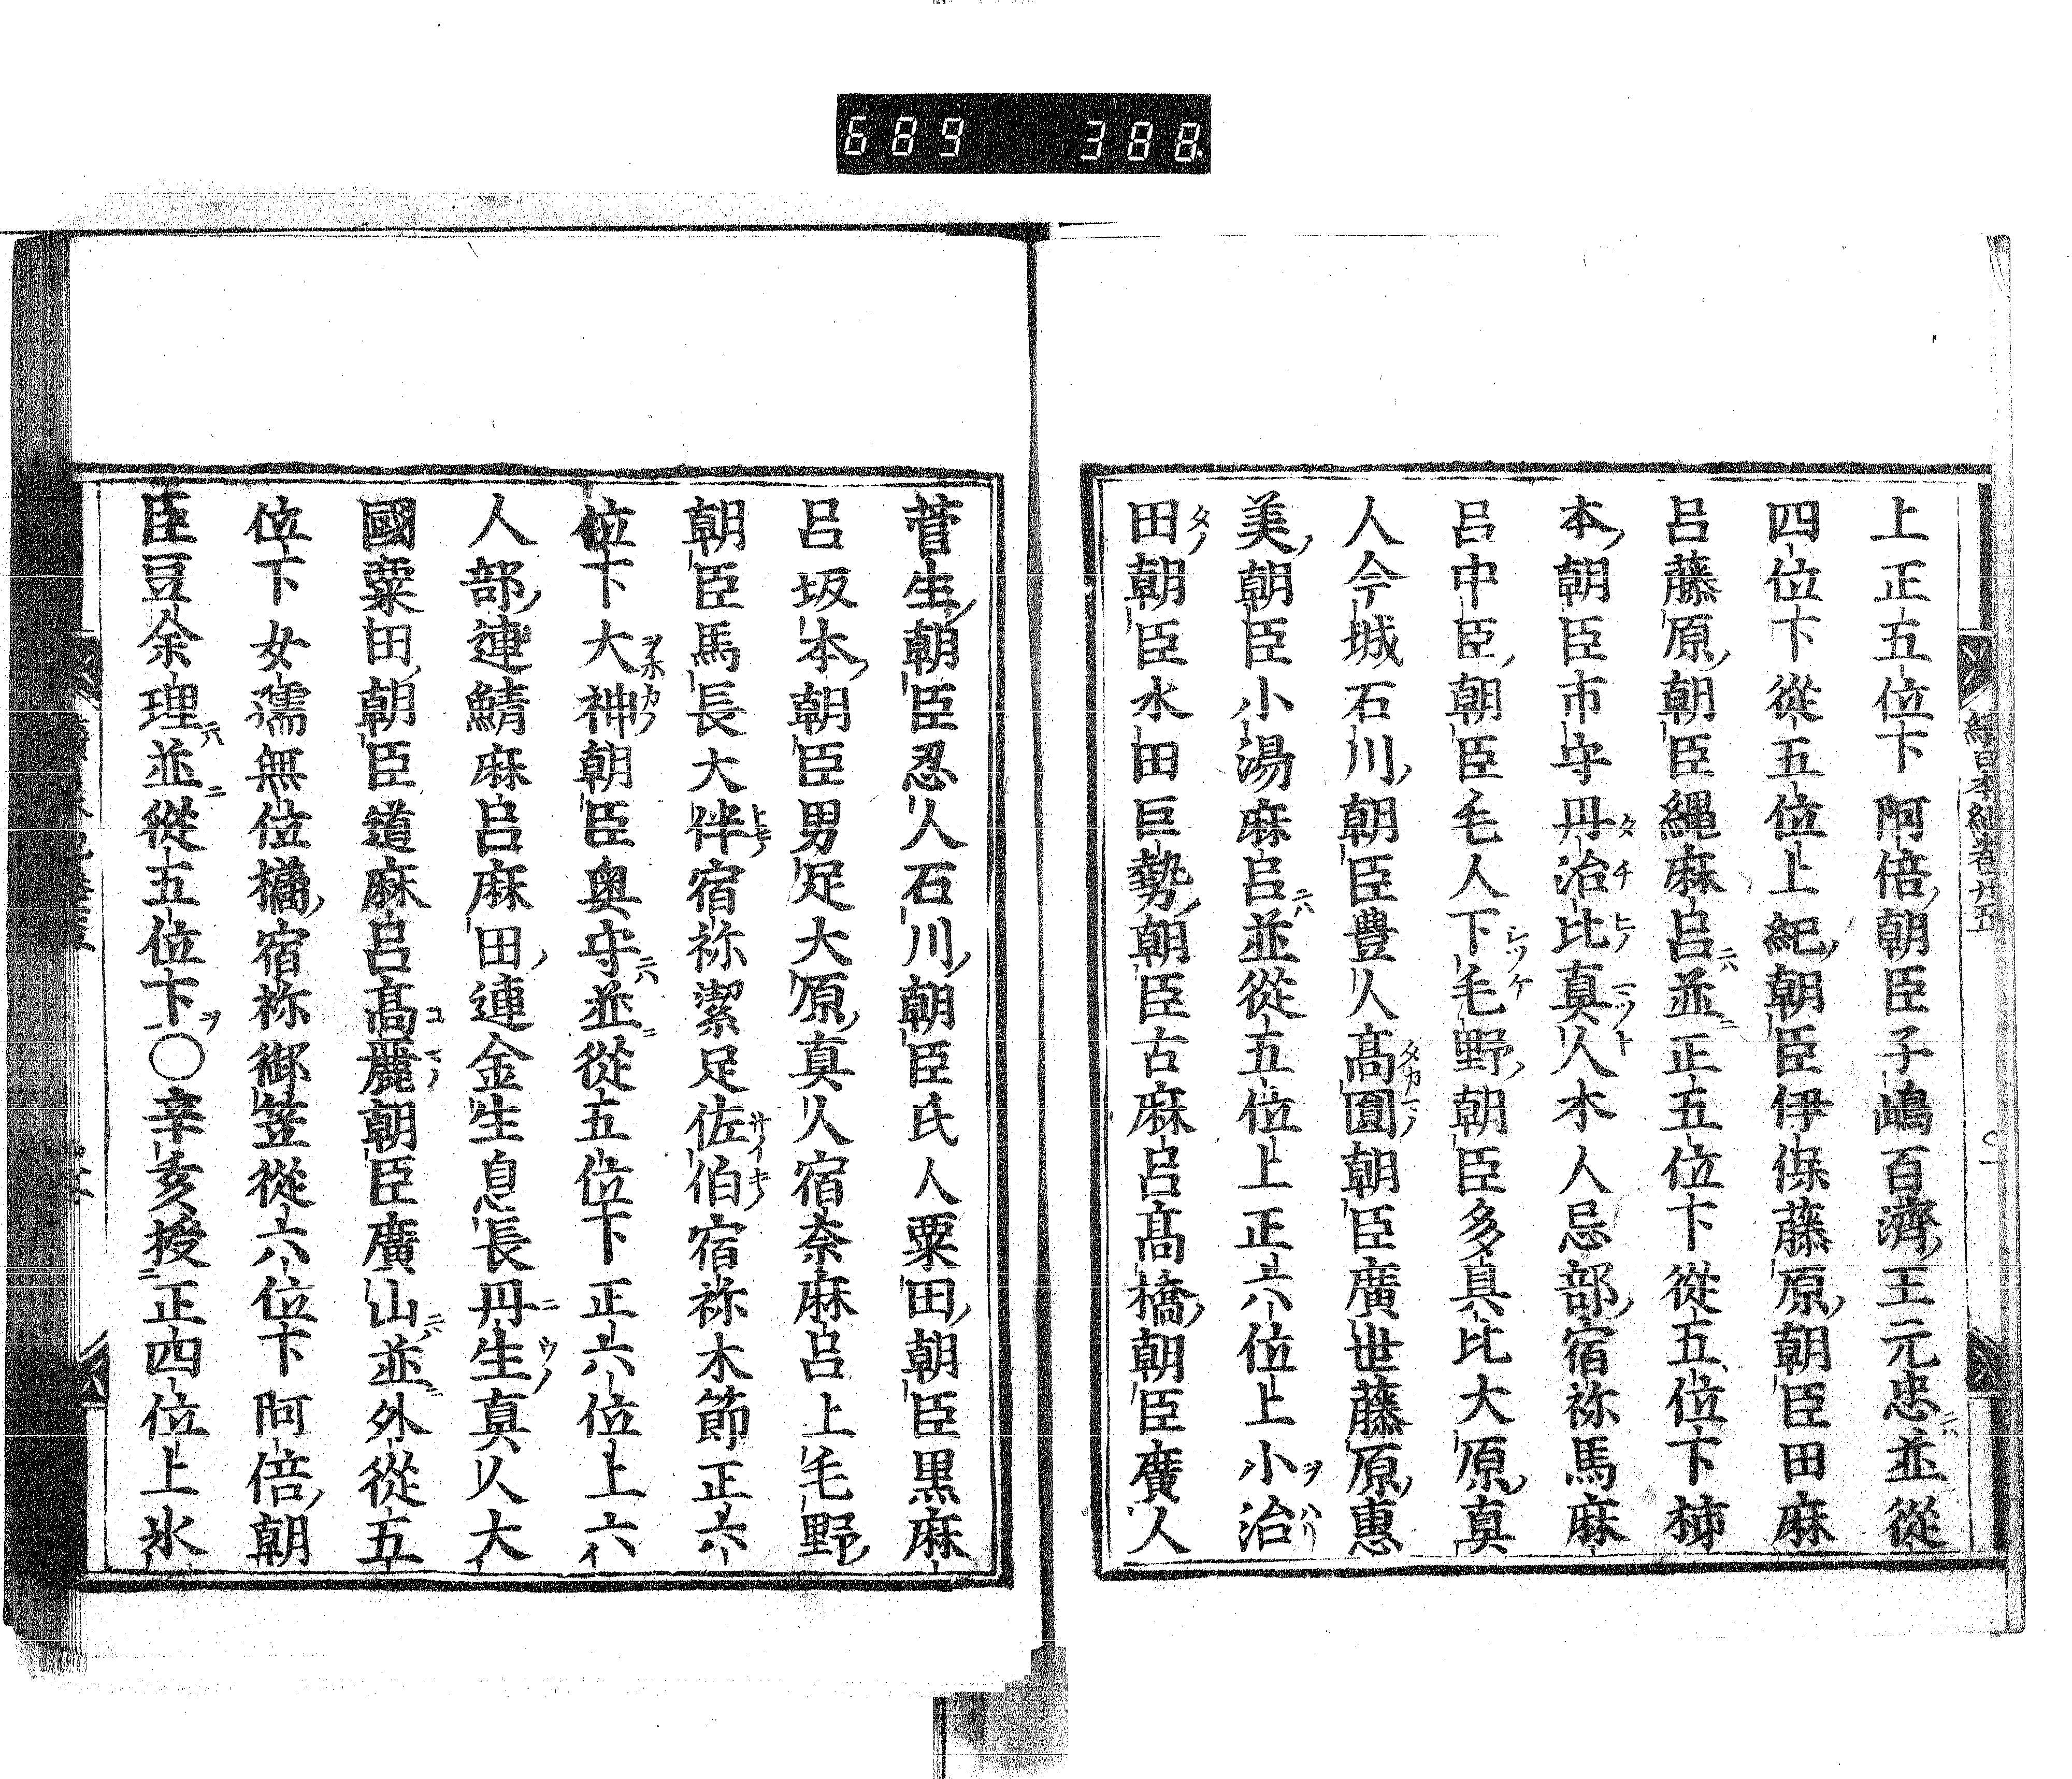 689 388
續日本紀卷廿五
上正五位下阿倍朝臣子嶋百濟王元忠並從
四位下從五位上紀朝臣伊保藤原朝臣田麻
呂藤原朝臣縄麻呂並正五位下從五位下柿
本朝臣市守丹治比真人木人忌部宿祢馬麻
呂中臣朝臣毛人下毛野朝臣多具比大原真
人今城石川朝臣豊人髙圓朝臣廣世藤原惠
美朝臣小湯麻呂並從五位上正六位上小治
田朝臣水田巨勢朝臣古麻呂髙橋朝臣廣人
菅生朝臣忍人石川朝臣氏人粟田朝臣黒麻
呂坂本朝臣男足大原真人宿奈麻呂上毛野
朝臣馬長大伴宿祢潔足佐伯宿祢木節正六
位下大神朝臣奥守並從五位下正六位上六
人部連鯖麻呂麻田連金生息長丹生真人大
國粟田朝臣道麻呂髙麗朝臣廣山並外從五
位下女孺無位橘宿祢御笠從六位下阿倍朝
臣豆余理並從五位下○辛亥授正四位上氷